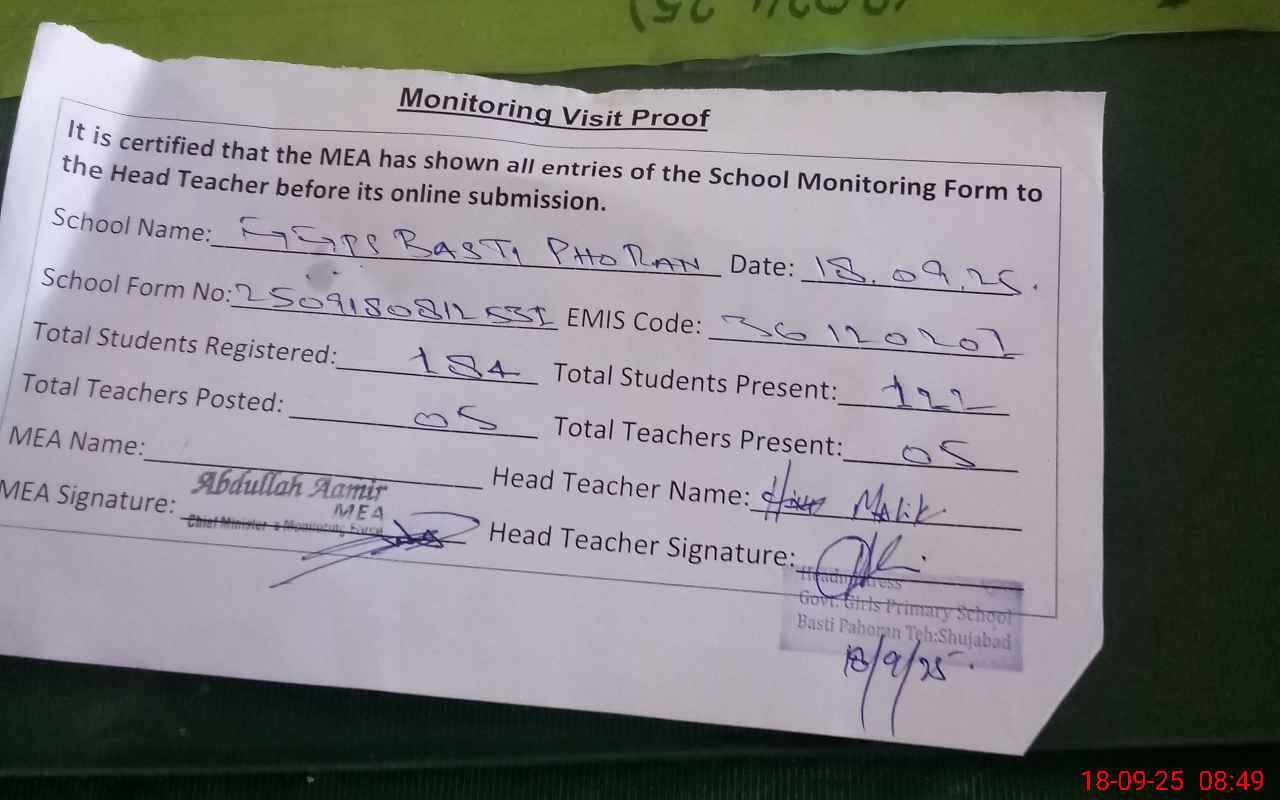 Monitoring Visit Proof
It is certified that the MEA has shown all entries of the School Monitoring Form to
the Head Teacher before its online submission.
School Name: GGPS BASTI PHORAN Date: 18.09.25.
School Form No: 250918081255I EMIS Code: 36120207
Total Students Registered: 184 Total Students Present: 122
Total Teachers Posted: 05 Total Teachers Present: 05
MEA Name: Head Teacher Name: Malik
Abdullah Aamir
MEA
Chief Minister's Monitoring Force
MEA Signature: Head Teacher Signature:
Headmistress
Govt. Girls Primary School
Basti Pahoran Teh:Shujabad
18/9/25
18-09-25 08:49